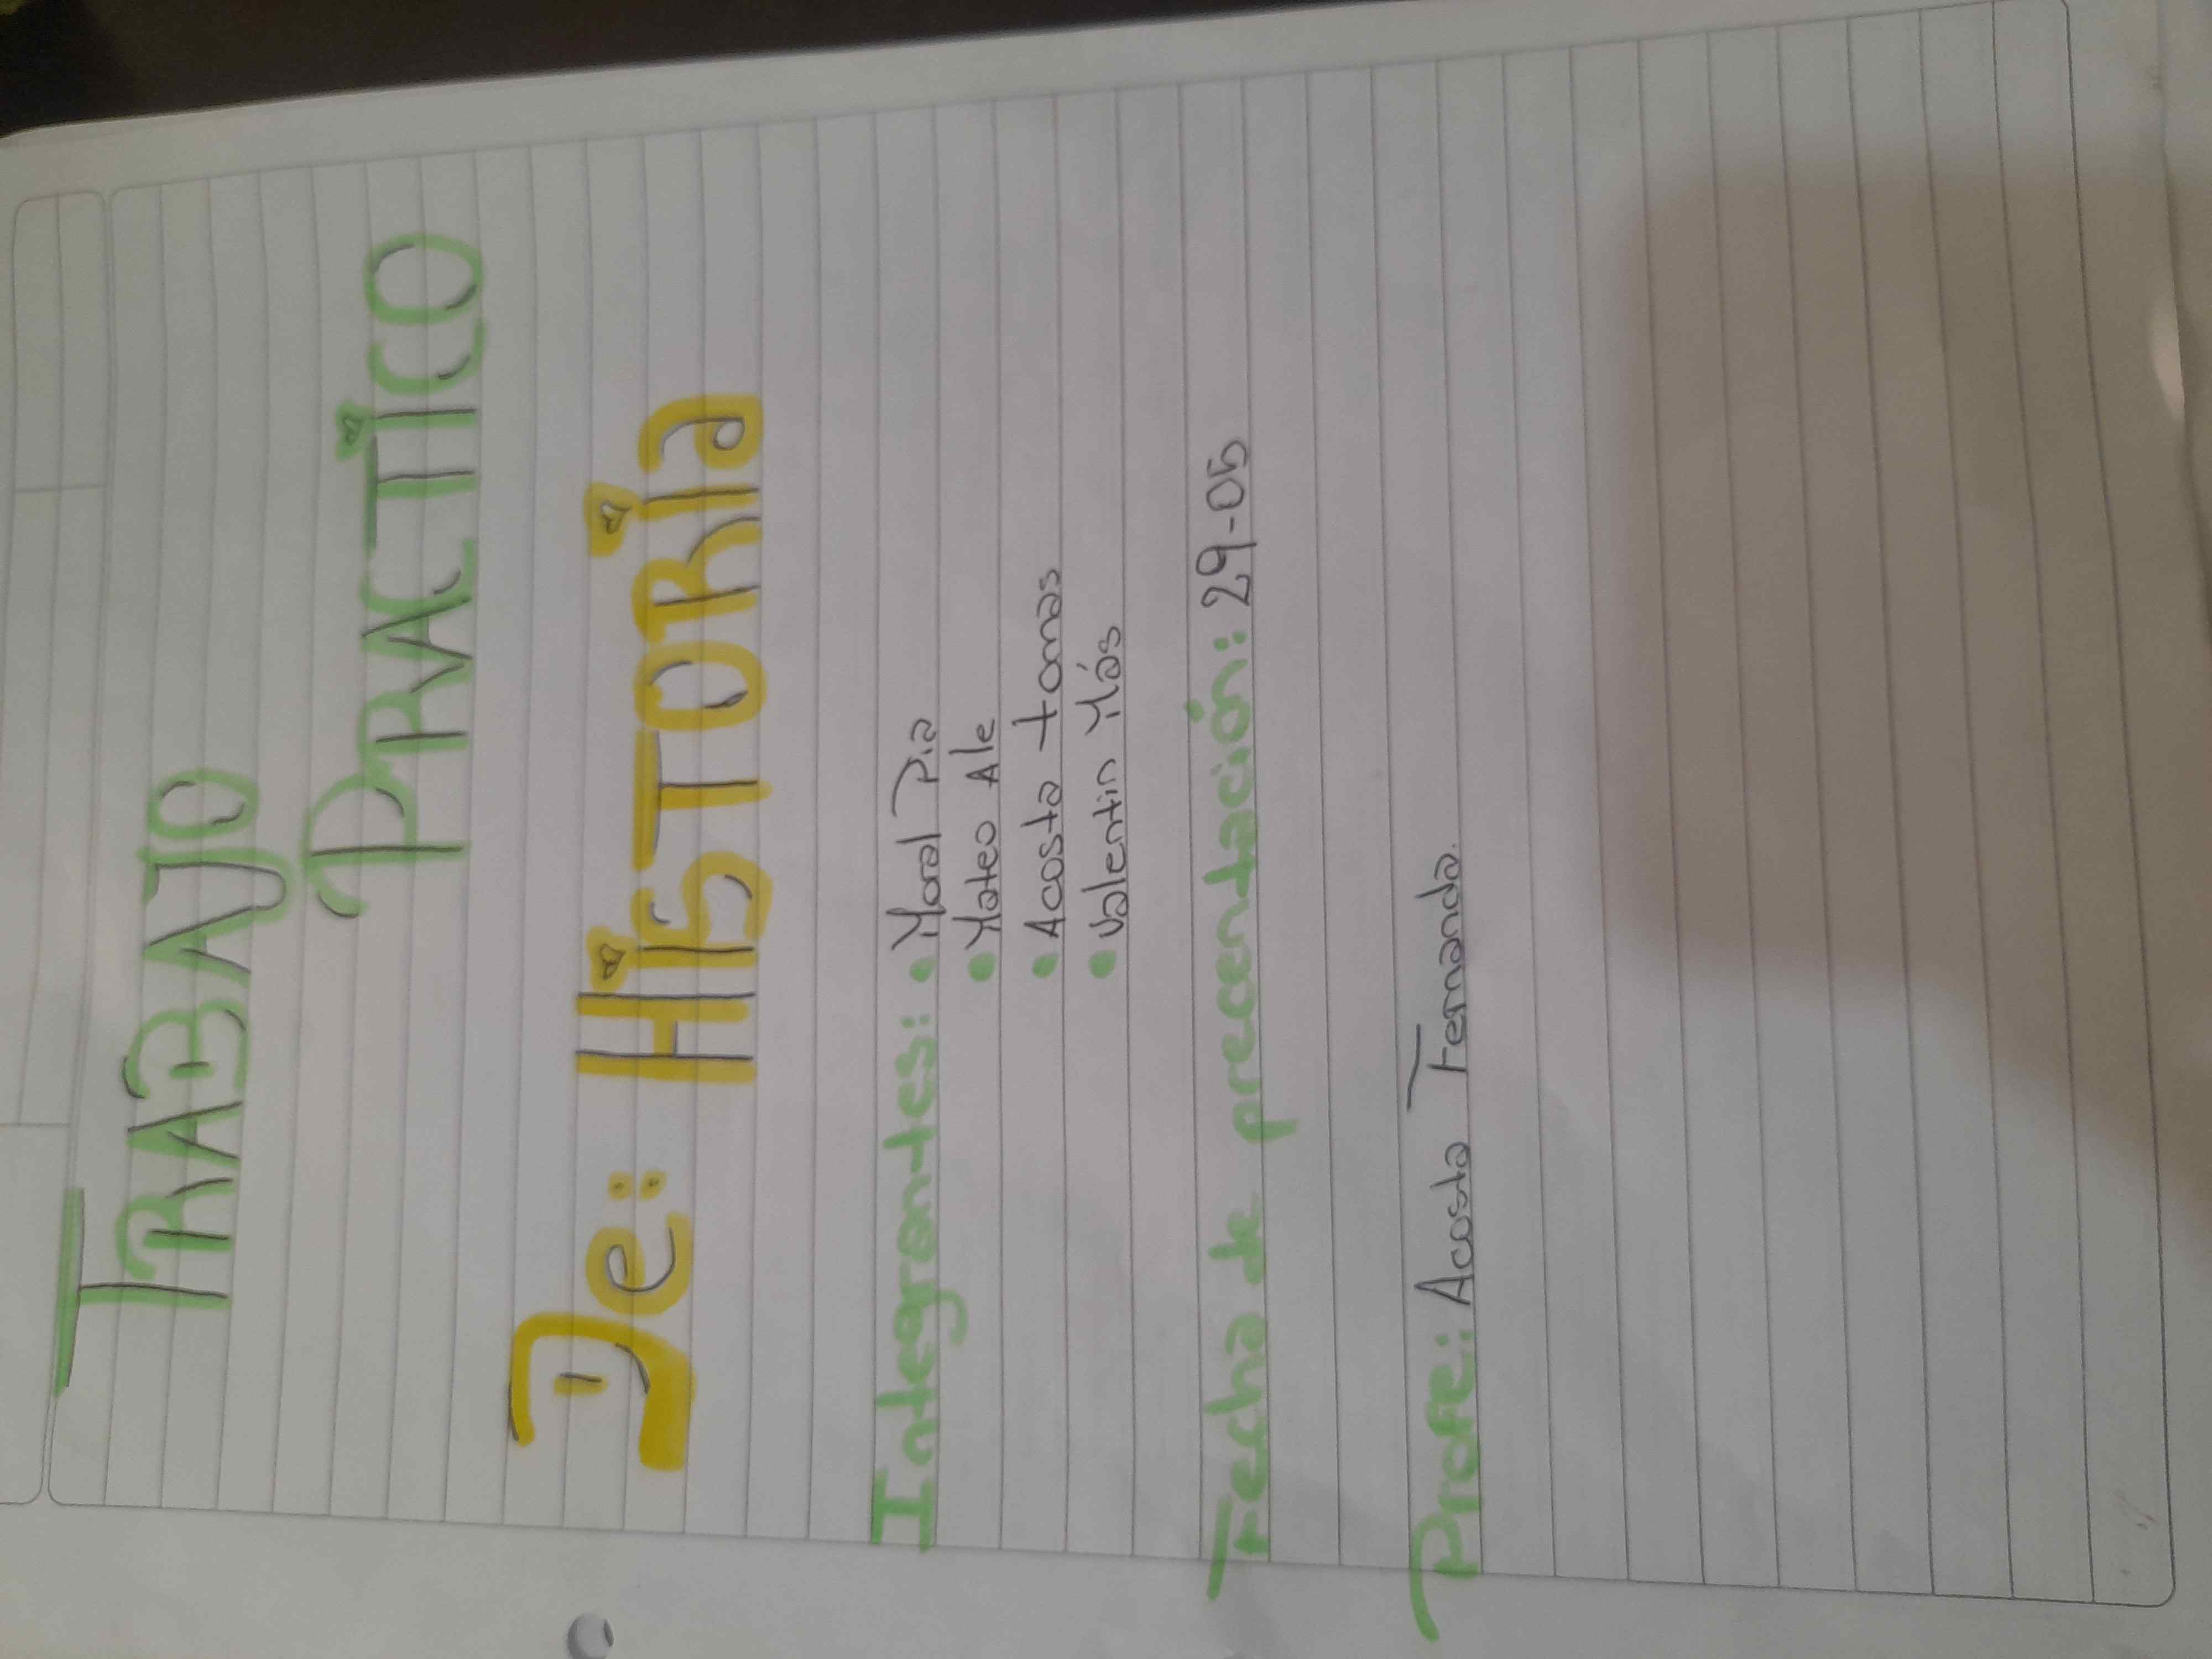 TRABAJO
PRACTICO
De: HiSTORia
Integrantes: • Moral Pia
• Mateo Ale
• Acosta tomas
• Valentin Más
Fecha de precentación: 29-05
Profe: Acosta Fernanda.